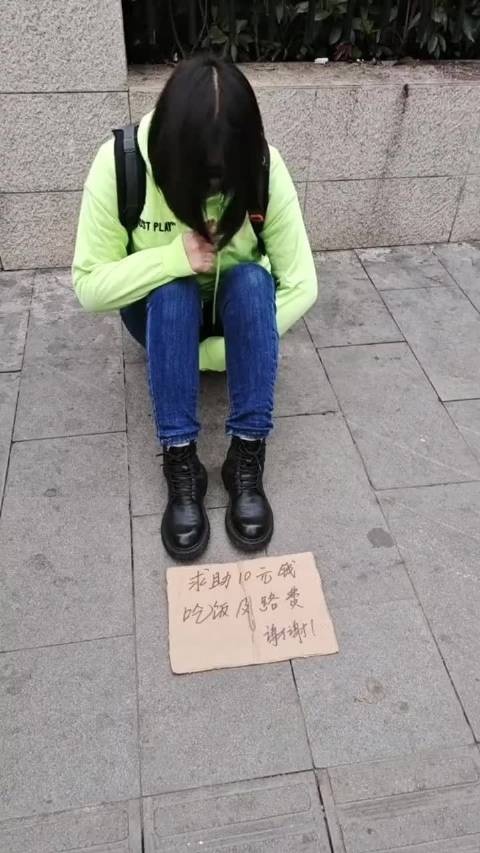 JUST PLAY
求助10元钱
吃饭及路费
谢谢!